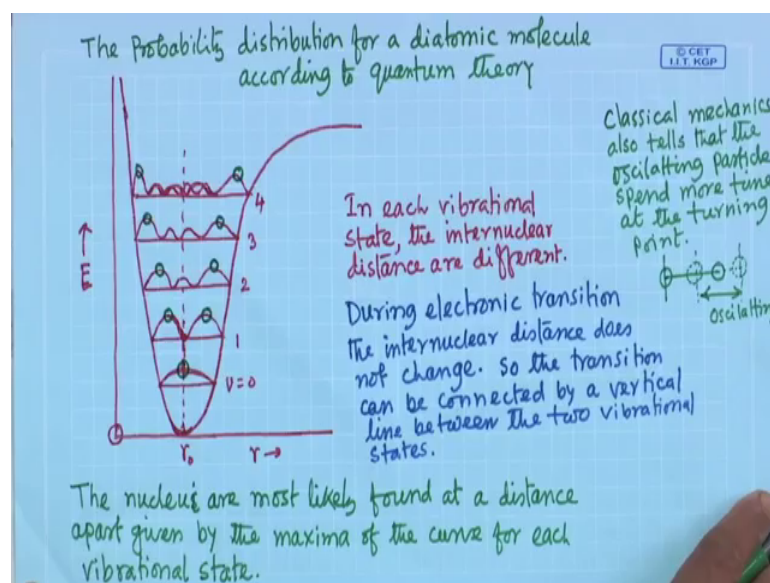 The Probability distribution for a diatomic molecule
according to quantum theory
© CET
I.I.T. KGP
Classical mechanics
also tells that the
oscilatting particle
spend more time
at the turning
point.
oscilatting
In each vibrational
state, the internuclear
distance are different.
During electronic transition
the internuclear distance does
not change. So the transition
can be connected by a vertical
line between the two vibrational
states.
4
3
2
1
v=0
E
r₀
r →
The nucleus are most likely found at a distance
apart given by the maxima of the curve for each
vibrational state.